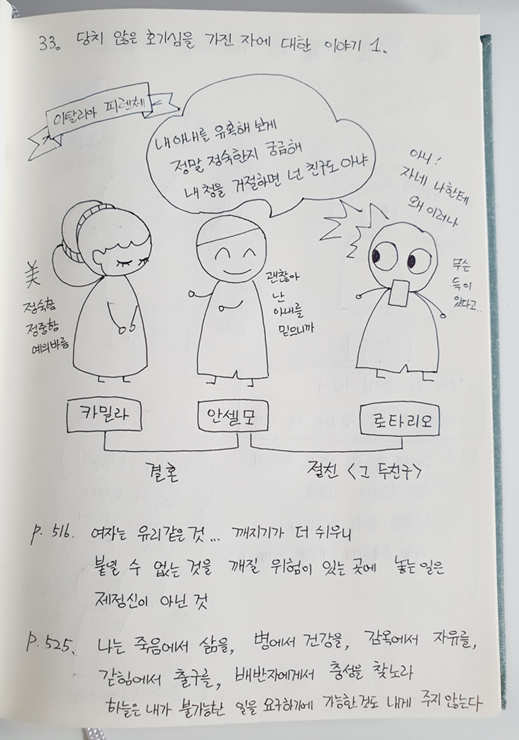 33. 당치 않은 호기심을 가진 자에 대한 이야기 1.
이탈리아 피렌체
내 아내를 유혹해 보게
정말 정숙한지 궁금해
내 청을 거절하면 넌 친구도 아냐
아니!
자네 나한테
왜 이러나
美
정숙함
정중함
예의바름
괜찮아
난
아내를
믿으니까
무슨
득이
있다고..
카밀라
안셀모
로타리오
결혼
절친 <그 두친구>
p. 516. 여자는 유리같은 것... 깨지기가 더 쉬우니
붙일 수 없는 것을 깨질 위험이 있는 곳에 놓는 일은
제정신이 아닌 것
p. 525. 나는 죽음에서 삶을, 병에서 건강을, 감옥에서 자유를,
갇힘에서 출구를, 배반자에게서 충성을 찾노라
하늘은 내가 불가능한 일을 요구하기에 가능한것도 내게 주지 않는다